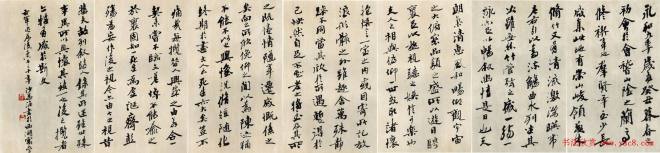 永和九年歲在癸丑暮春
初會于會稽山陰之蘭亭
脩稧事也羣賢畢至少長
咸集此地有崇山峻領茂林
脩竹又有清流激湍暎帶
左右引以為流觴曲水列坐其
次雖無絲竹管弦之盛一觴一
詠亦足以暢敘幽情是日也天
朗氣清惠風和暢仰觀宇宙
之大俯察品類之盛所以遊目騁
懷足以極視聽之娛信可樂也
夫人之相與俯仰一世或取諸懷
抱悟言一室之內或因寄所託放
浪形骸之外雖趣舍萬殊靜
躁不同當其欣於所遇蹔得於
己快然自足不知老之將至及其所
之既惓情隨事遷感慨係之
矣向之所欣俛仰之間以為陳迹猶
不能不以之興懷況脩短隨化
終期於盡古人云死生亦大矣豈不
痛哉每攬昔人興感之由若合一
契未嘗不臨文嗟悼不能喻之
於懷固知一死生為虛誕齊彭
殤為妄作後之視今亦由今之視昔
悲夫故列敘時人錄其所述雖世殊
事異所以興懷其致一也後之攬者
亦將有感於斯文